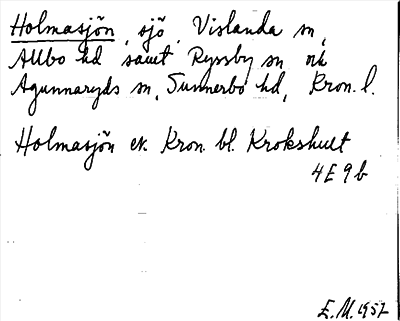 Holmasjön, sjö, Vislanda sn,
Allbo hd samt Ryssby sn och
Agunnaryds sn, Sunnerbo hd, Kron. l.
Holmasjön ek. Kron. bl. Krokshult
4E9b
E.M. 1957